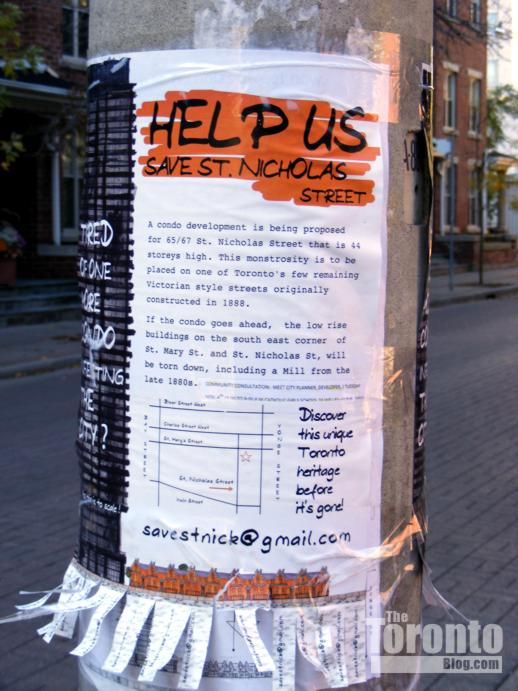 HELP US
SAVE ST. NICHOLAS
STREET
A condo development is being proposed
for 65/67 St. Nicholas Street that is 44
storeys high. This monstrosity is to be
placed on one of Toronto's few remaining
Victorian style streets originally
constructed in 1888.
If the condo goes ahead, the low rise
buildings on the south east corner of
St. Mary St. and St. Nicholas St, will
be torn down, including a Mill from the
late 1880s.
COMMUNITY CONSULTATION: MEET CITY PLANNER, DEVELOPER,
Bloor Street West
Charles Street West
St. Mary's Street
St. Nicholas Street
Irwin Street
BAY STREET
YONGE STREET
to scale!
Discover
this unique
Toronto
heritage
before
it's gone!
savestnick@gmail.com
TIRED
OF ONE
MORE
CONDO
THE
CITY?
The
Toronto
Blog.com